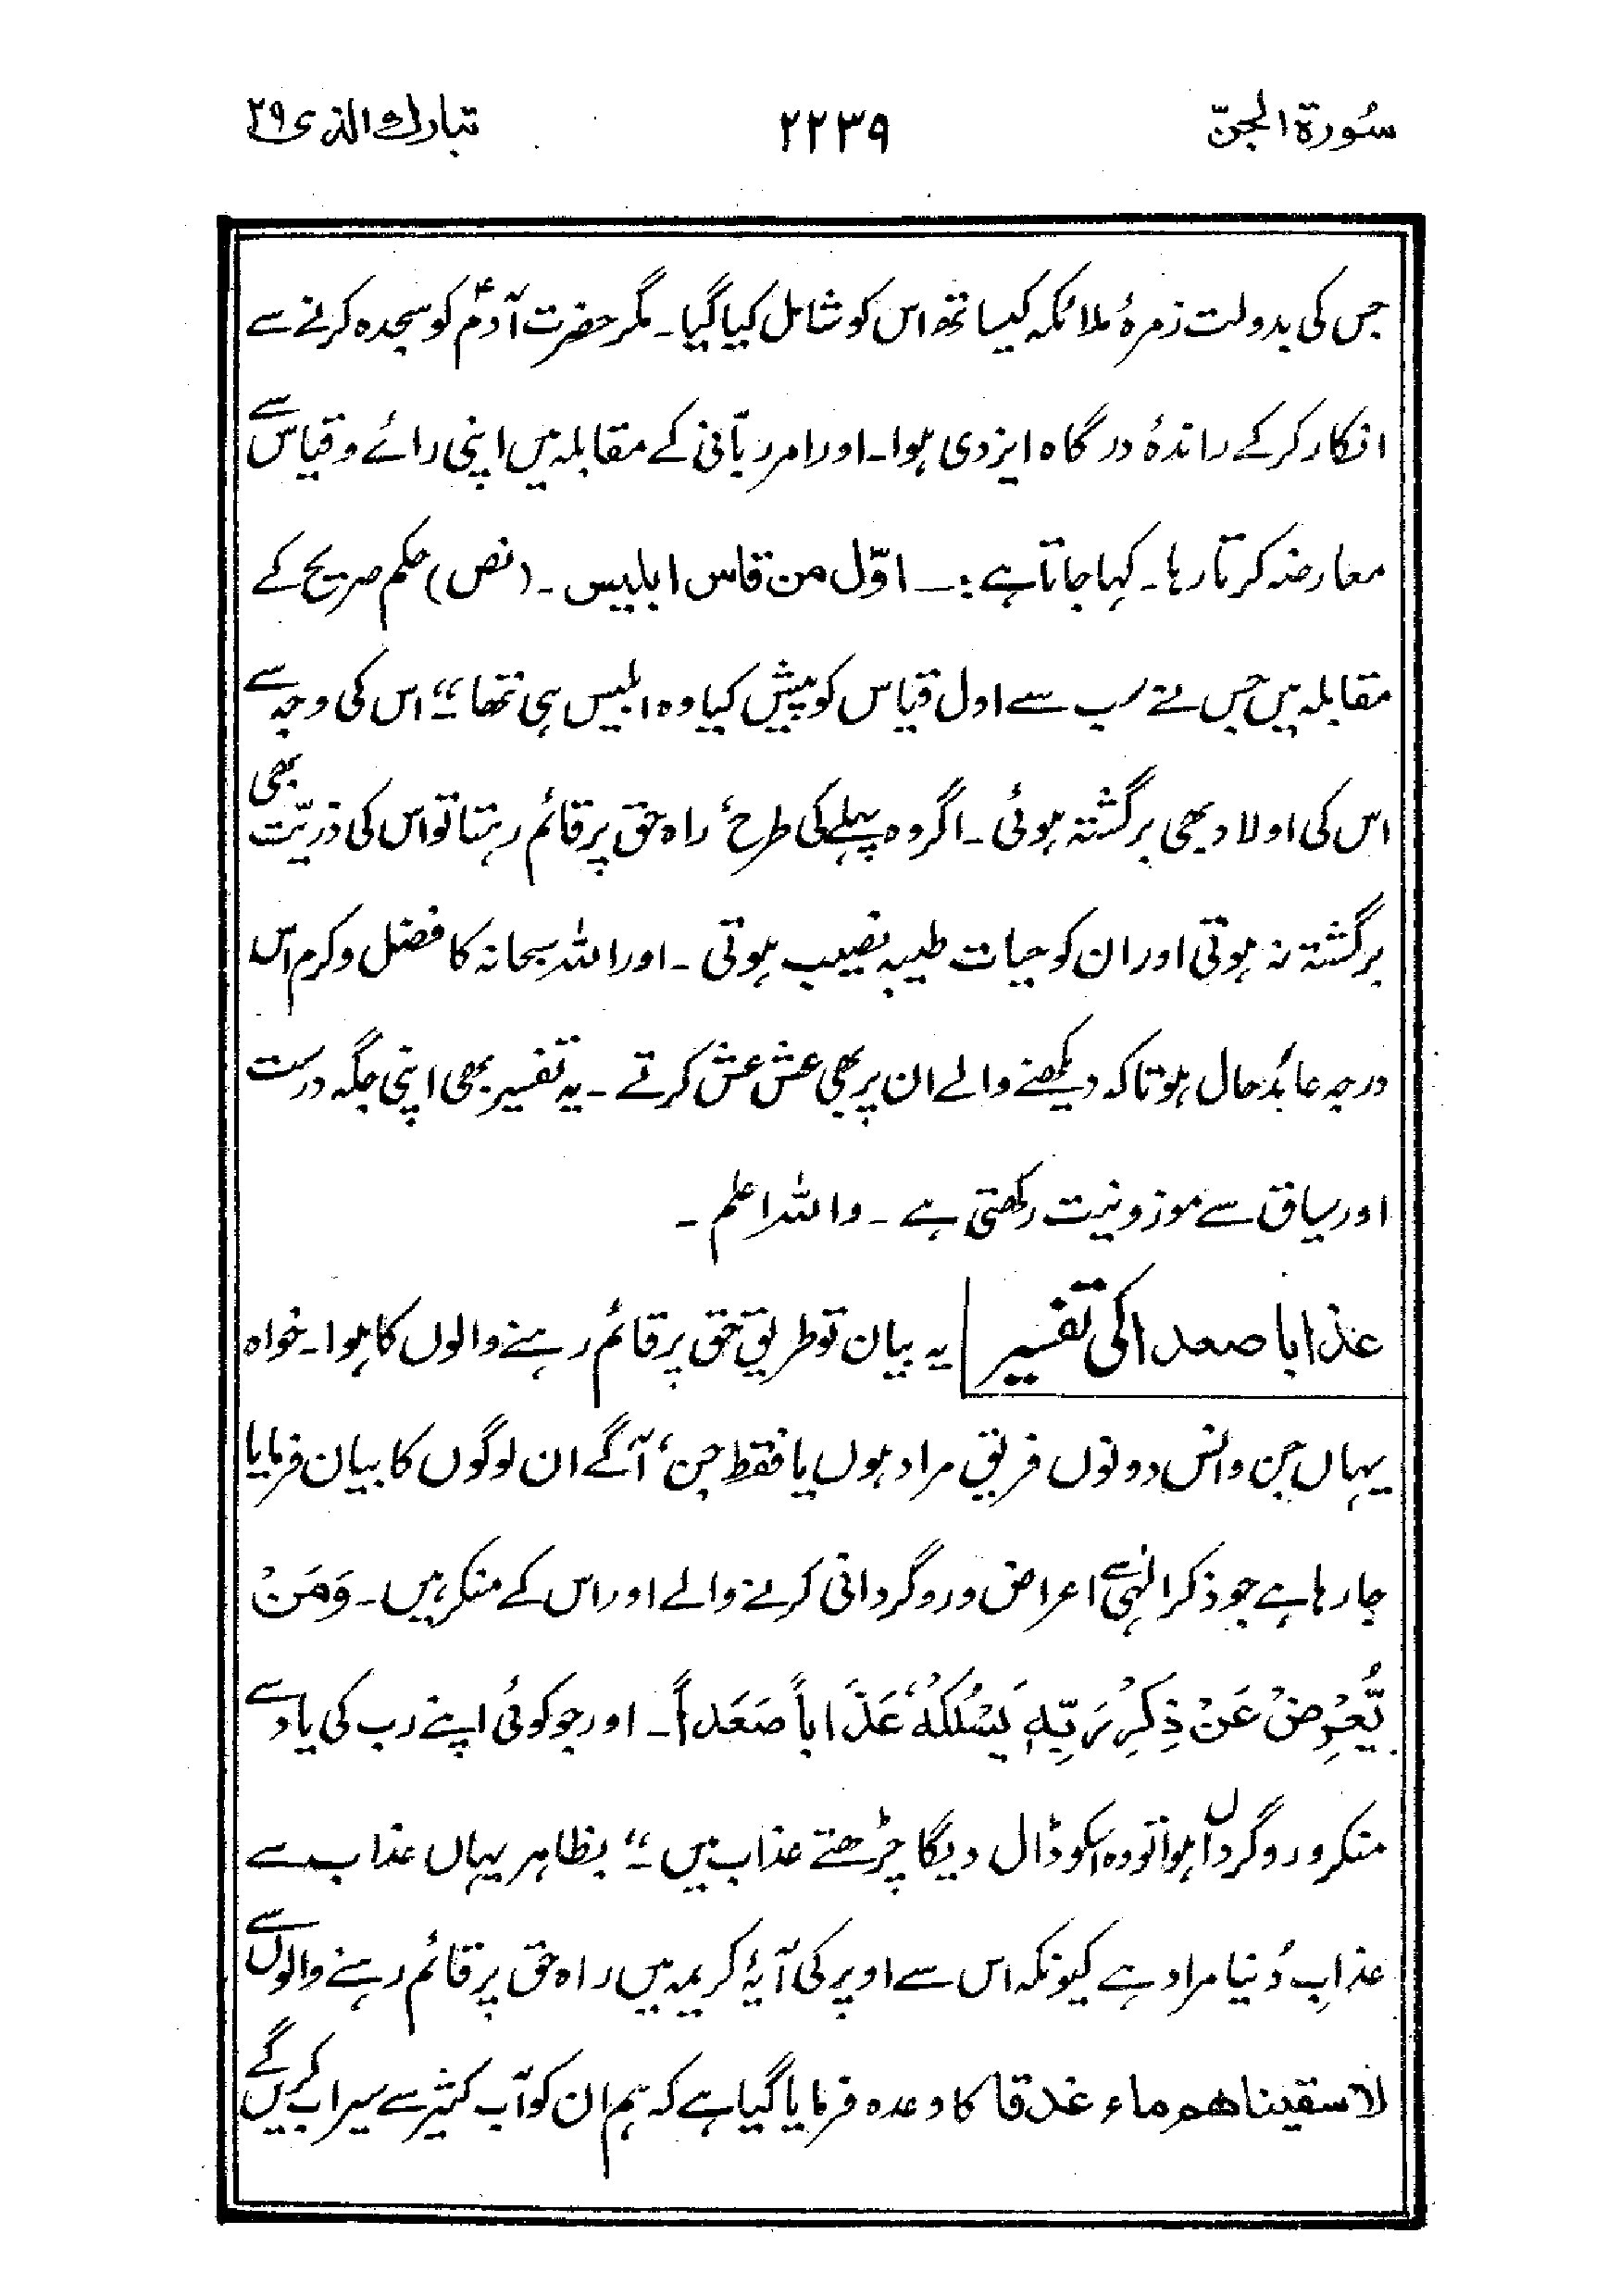 سُورۃ الجنّ
۲۲۳۹
تبارك الذی ۲۹
جس کی بدولت زمرۂ ملائکہ کیساتھ اس کو شامل کیا گیا۔ مگر حضرت آدمؑ کو سجدہ کرنے سے
انکار کرکے راندۂ درگاہ ایزدی ہوا۔ اور امر ربّانی کے مقابلہ میں اپنی رائے و قیاس سے
معارضہ کرتا رہا۔ کہا جاتا ہے :۔ اوّل من قاس ابلیس ۔ (نص) حکم صریح کے
مقابلہ میں جس نے سب سے اول قیاس کو پیش کیا وہ ابلیس ہی تھا"۔ اس کی وجہ سے
اس کی اولاد بھی برگشتہ ہوئی ۔ اگر وہ پہلے کی طرح، راہ حق پر قائم رہتا تو اس کی ذریّت بھی
برگشتہ نہ ہوتی اور ان کو حیات طیبہ نصیب ہوتی ۔ اور اللہ سبحانہ کا فضل و کرم اس
درجہ عائد حال ہوتا کہ دیکھنے والے ان پر بھی عش عش کرتے ۔ یہ تفسیر بھی اپنی جگہ درست
اور سیاق سے موزونیت رکھتی ہے ۔ واللہ اعلم ۔
عذابا صعدا کی تفسیر یہ بیان تو طریق حق پر قائم رہنے والوں کا ہوا۔ خواہ
یہاں جن و انس دونوں فریق مراد ہوں یا فقط جن، آگے ان لوگوں کا بیان فرمایا
جا رہا ہے جو ذکر الٰہی سے اعراض و روگردانی کرنے والے اور اس کے منکر ہیں۔ وَمَنْ
یُّعْرِضْ عَنْ ذِکْرِ رَبِّہٖ یَسْلُکْہُ عَذَاباً صَعَداً۔ اور جو کوئی اپنے رب کی یاد سے
منکر و روگرداں ہوا تو وہ اسکو ڈال دیگا چڑھتے عذاب میں ۔" بظاہر یہاں عذاب سے
عذابِ دُنیا مراد ہے کیونکہ اس سے اوپر کی آیۂ کریمہ میں راہ حق پر قائم رہنے والوں سے
لاسقیناھم ماء غدقا کا وعدہ فرمایا گیا ہے کہ ہم ان کو آب کثیر سے سیراب کریں گے